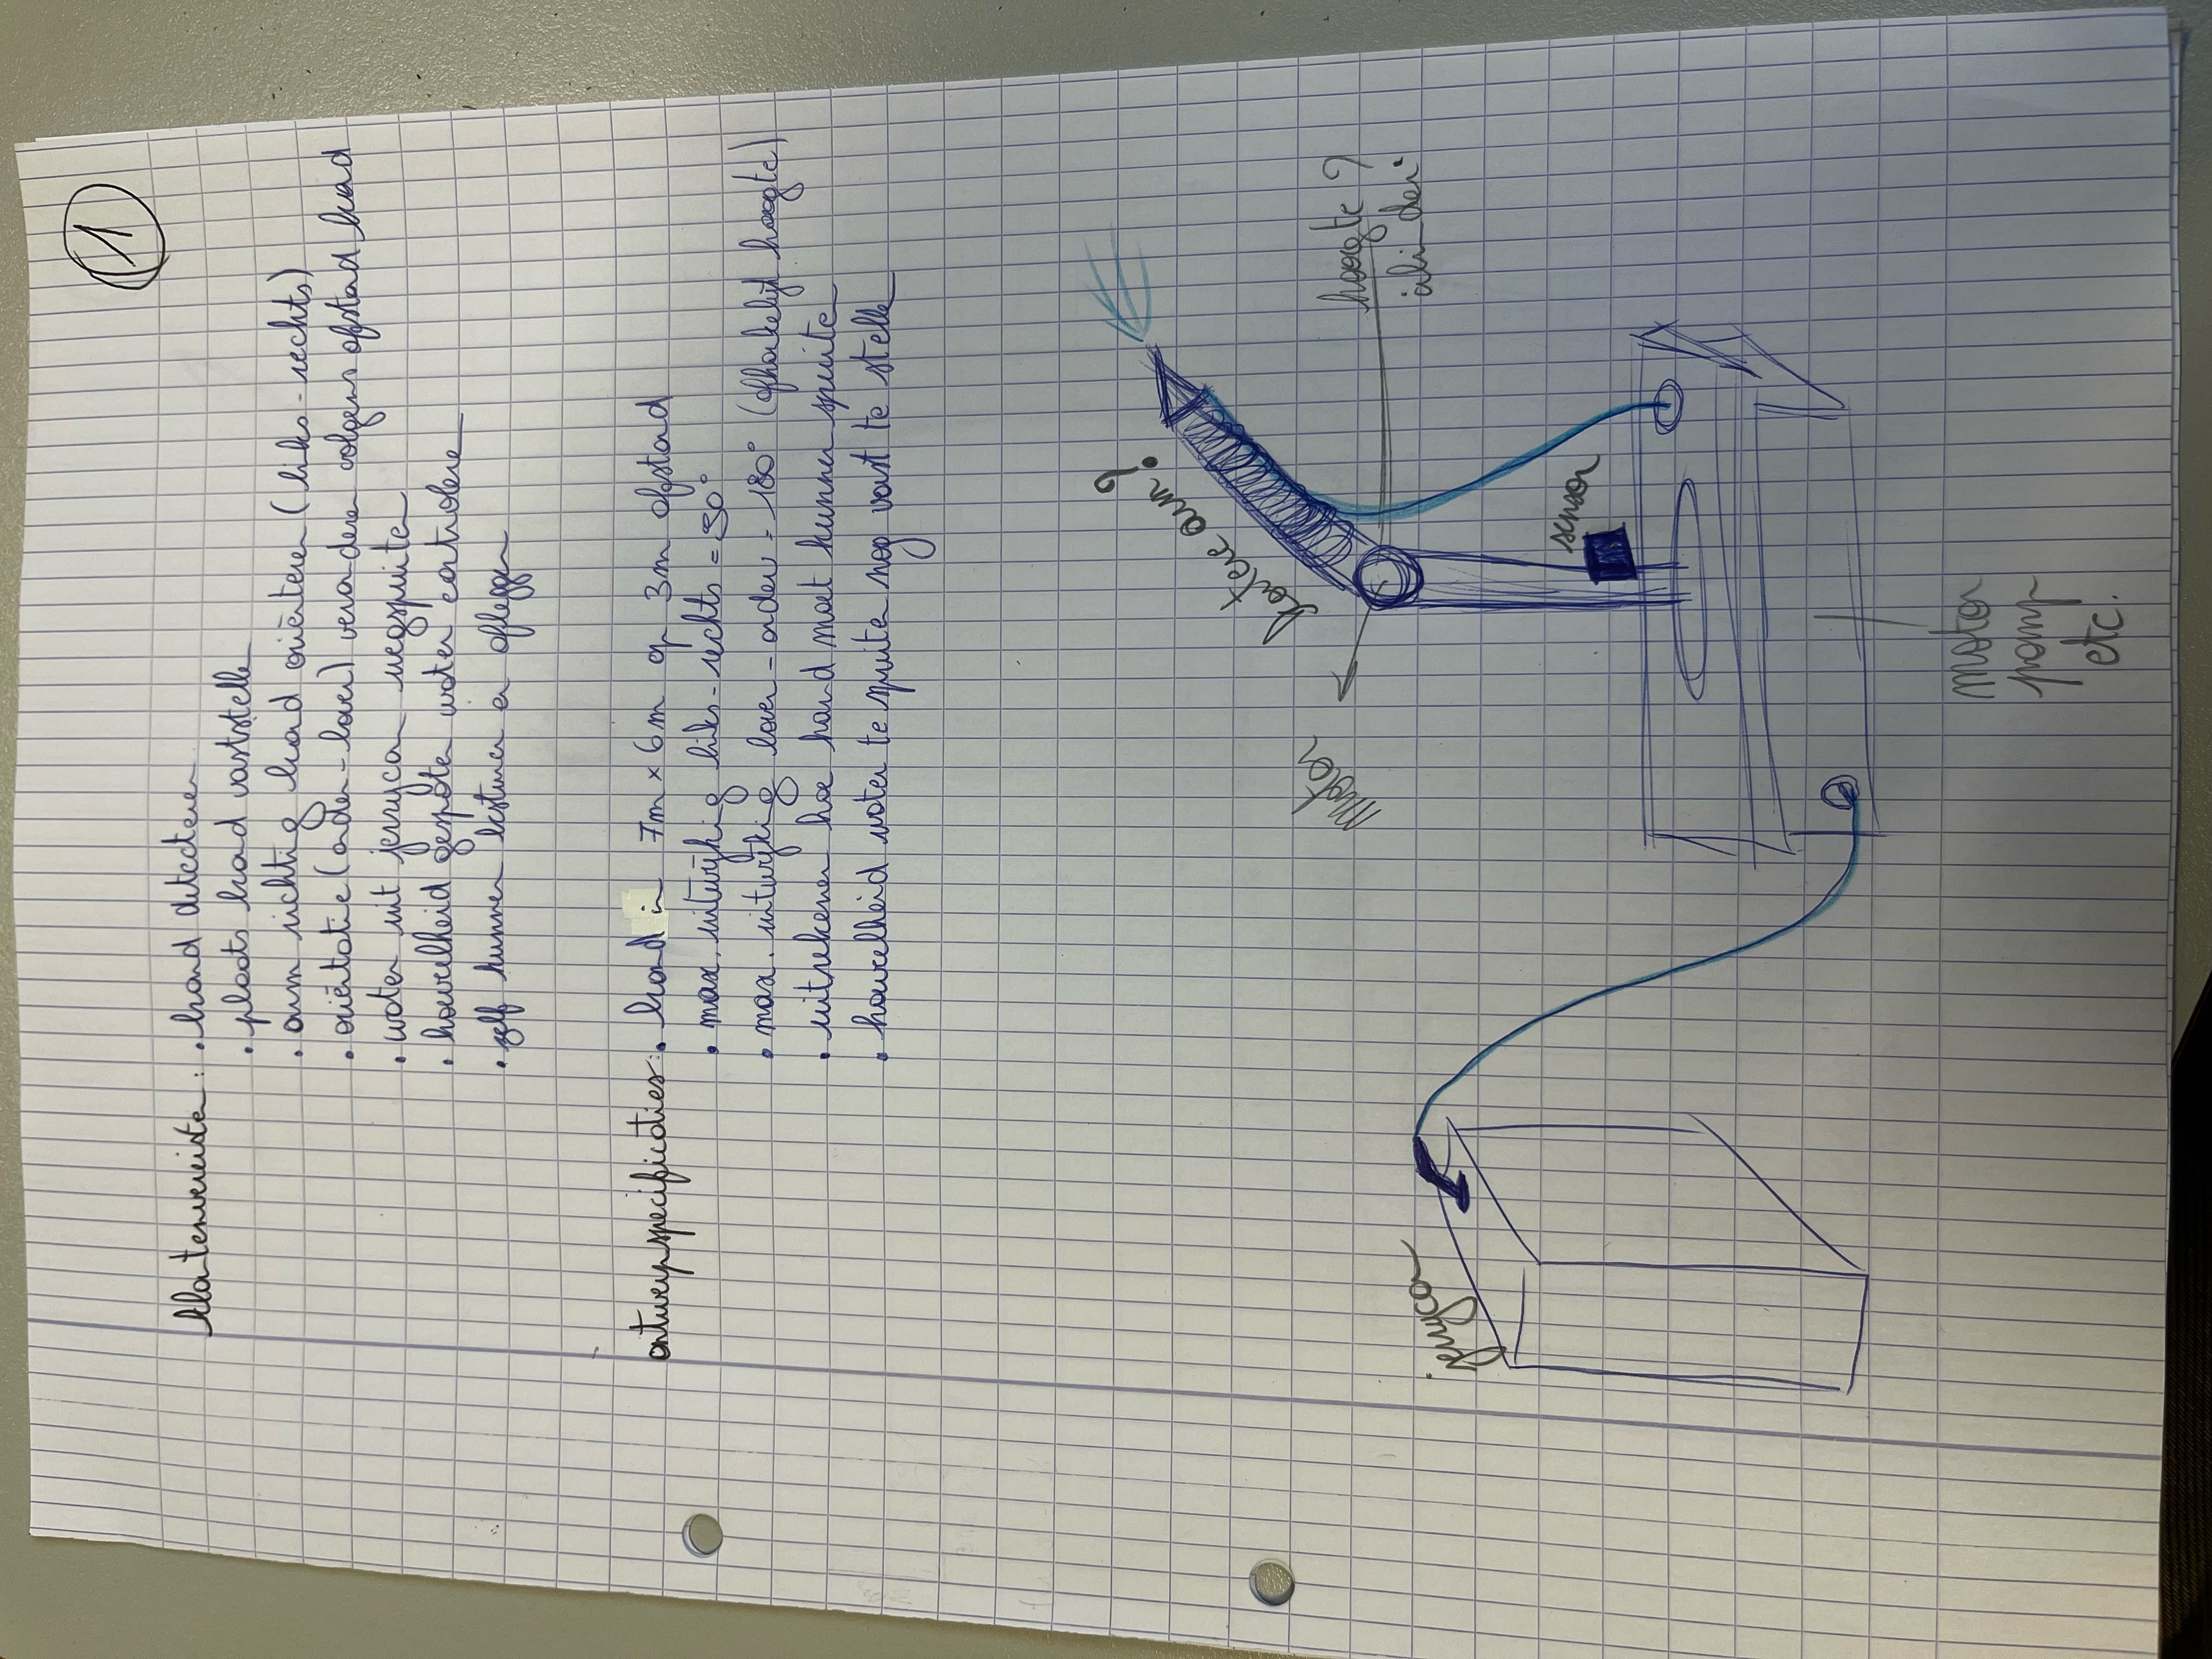 1
klantenvereisten: . brand detecteren
. plaats brand vaststellen
. arm richting brand oriënteren (links - rechts)
. oriëntatie (onder - boven) veranderen volgens afstand brand
. water uit jerrycan wegspuiten
. hoeveelheid gespoten water controleren
. zelf kunnen besturen en afleggen
ontwerpspecificaties: . brand in 7m x 6m op 3m afstad
. max. uitwijking links - rechts = 90°
. max. uitwijking boven - onder = 180° (afhankelijk hoogte)
. uitrekenen hoe hard moet kunnen spuiten
. hoeveelheid water te spuiten nog vast te stellen
kortere arm?
motor
hoogte?
cilinder?
jerrycan
sensor
motor
pomp
etc.